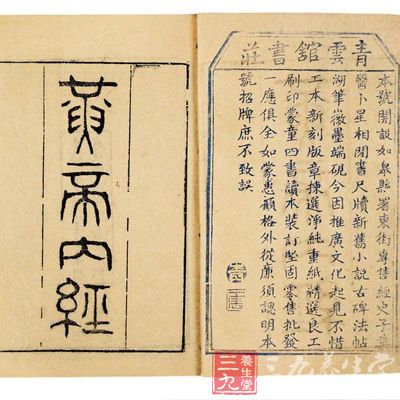 青雲舘書莊
本號開設如皋縣署東街專售經史子集
醫卜星相閒書尺牘新舊小說古碑法帖
湖筆徽墨端硯今因推廣文化起見不惜
工本新刻版章揀選淨純重紙精選良工
刷印蒙童四書讀本裝訂堅固零售批發
一應俱全如蒙惠顧格外從廉須認明本
號招牌庶不致誤
黃帝內經
三九
養生堂
三九養生堂